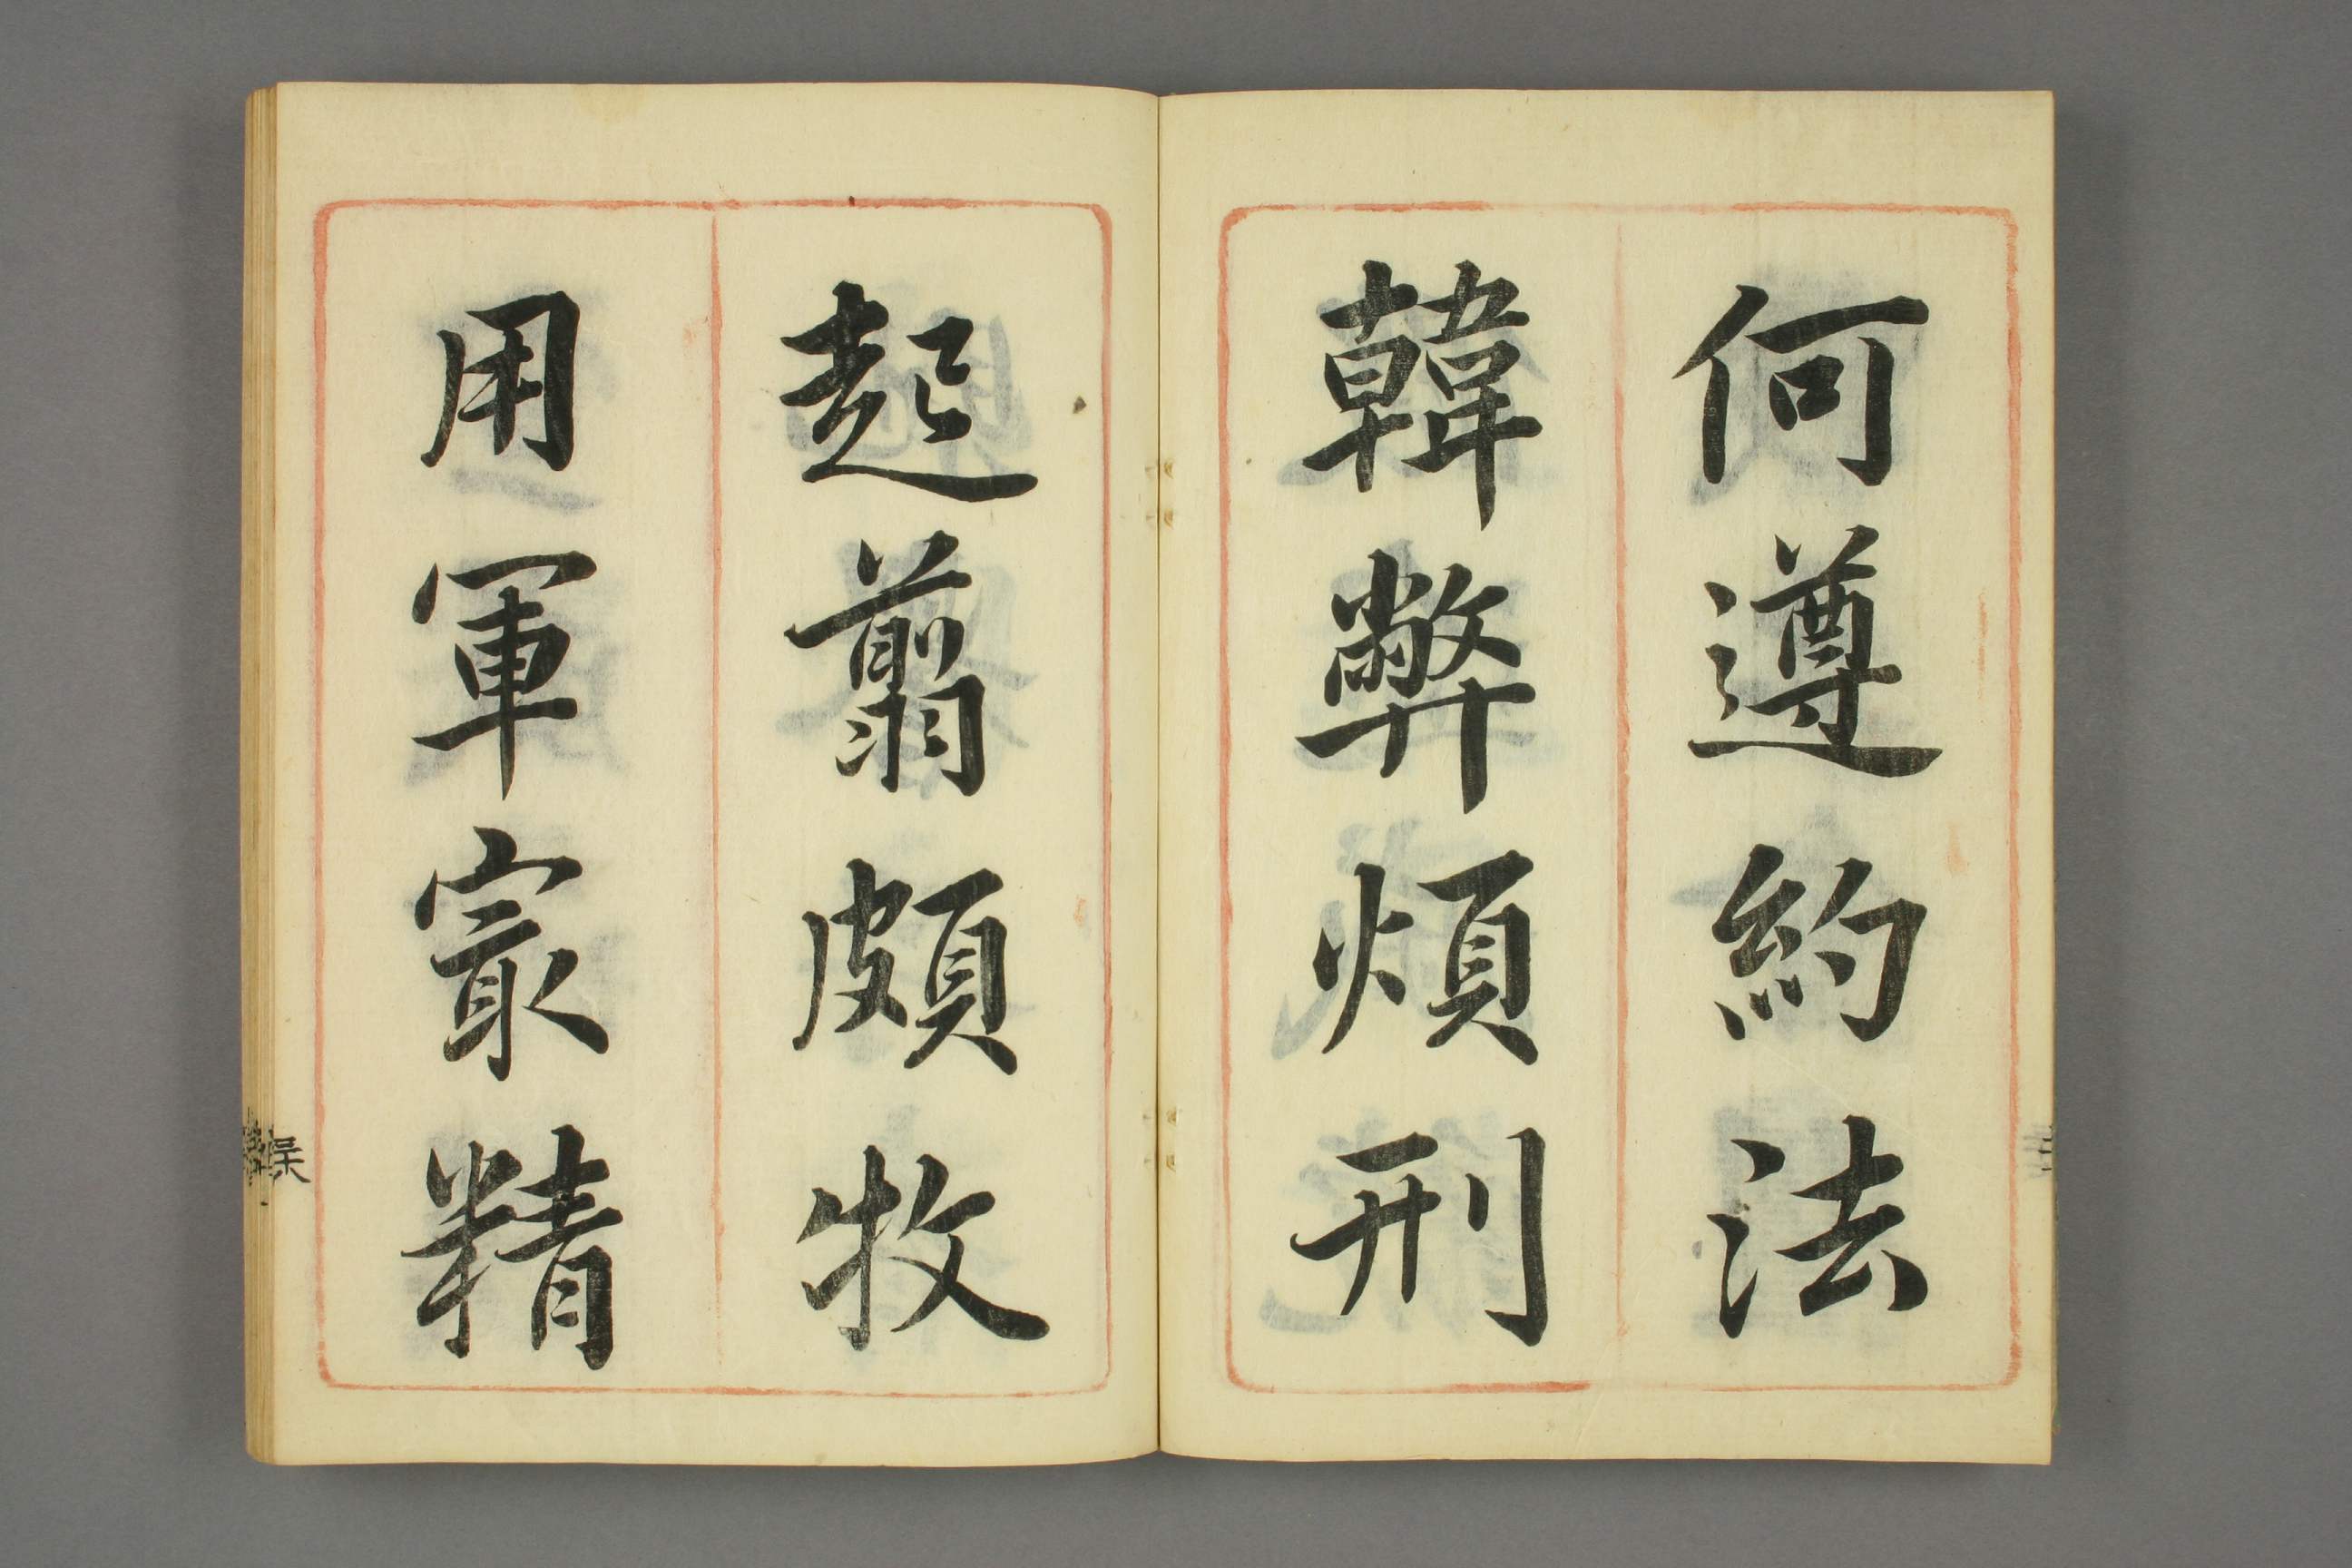 何遵約法
韓弊煩刑
起翦頗牧
用軍冣精